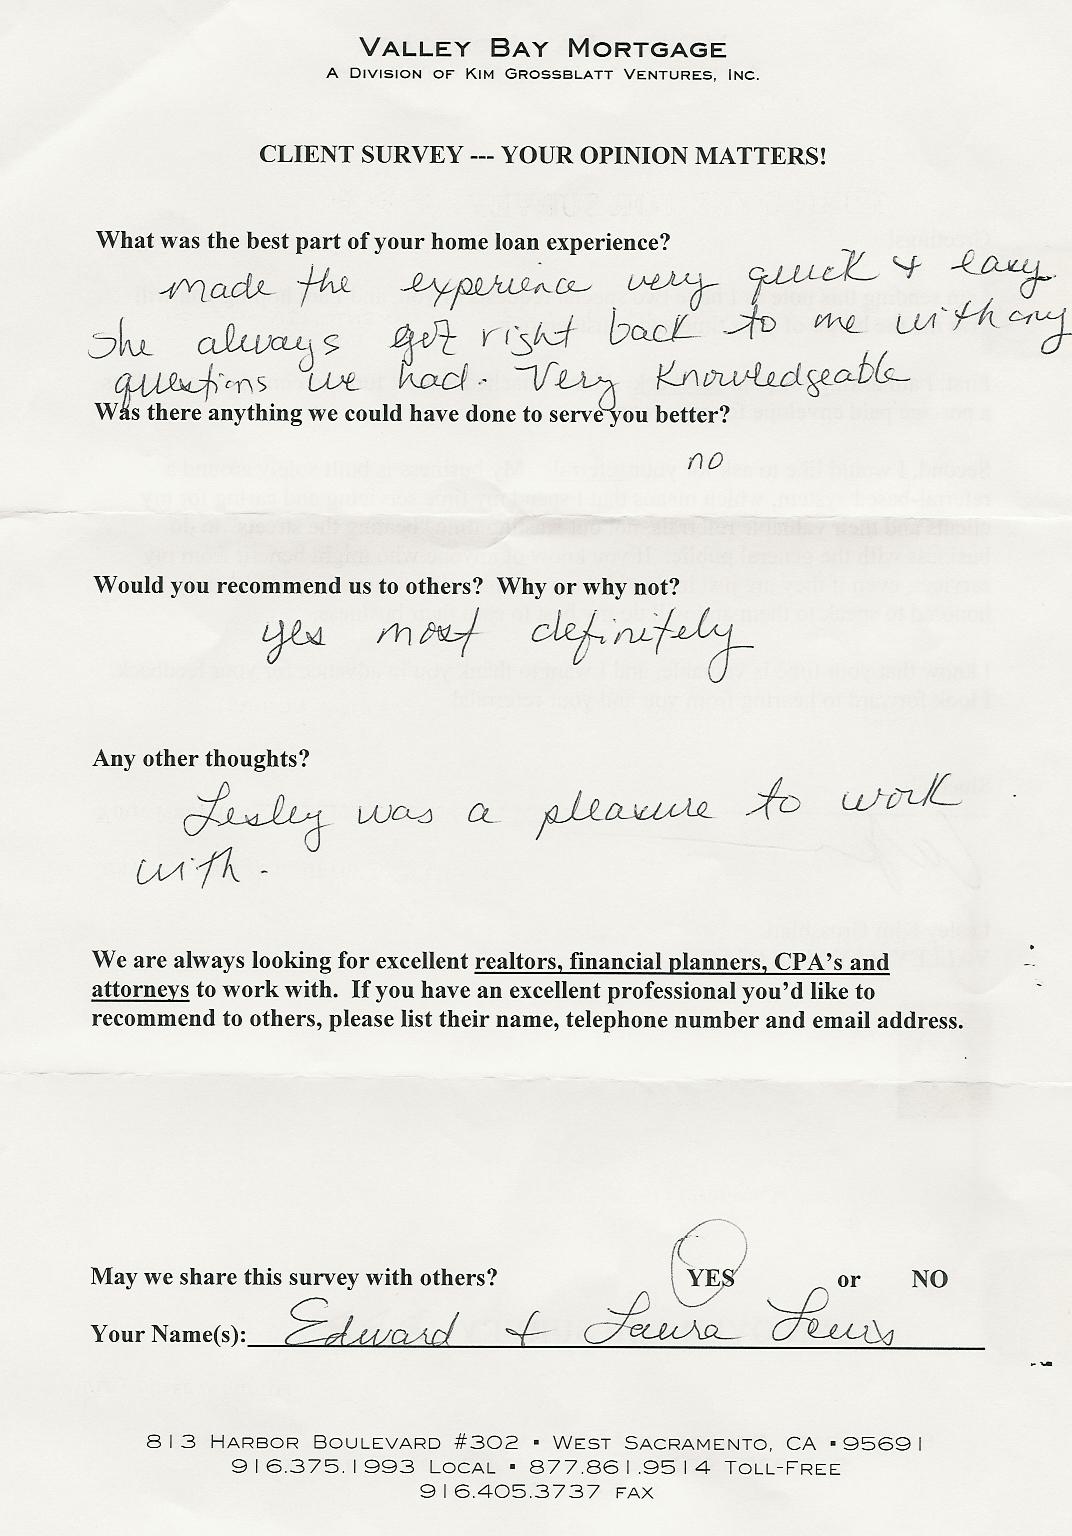 VALLEY BAY MORTGAGE
A DIVISION OF KIM GROSSBLATT VENTURES, INC.
CLIENT SURVEY --- YOUR OPINION MATTERS!
What was the best part of your home loan experience?
made the experience very quick & easy.
She always got right back to me with any
questions we had. Very Knowledgeable
Was there anything we could have done to serve you better?
no
Would you recommend us to others? Why or why not?
yes most definitely
Any other thoughts?
Lesley was a pleasure to work
with.
We are always looking for excellent realtors, financial planners, CPA's and
attorneys to work with. If you have an excellent professional you'd like to
recommend to others, please list their name, telephone number and email address.
May we share this survey with others? YES or NO
Your Name(s): Edward & Laura Lewis
813 HARBOR BOULEVARD #302 ▪ WEST SACRAMENTO, CA ▪ 95691
916.375.1993 LOCAL ▪ 877.861.9514 TOLL-FREE
916.405.3737 FAX